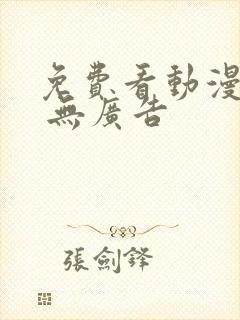 免費看動漫
無廣告
張劍鋒